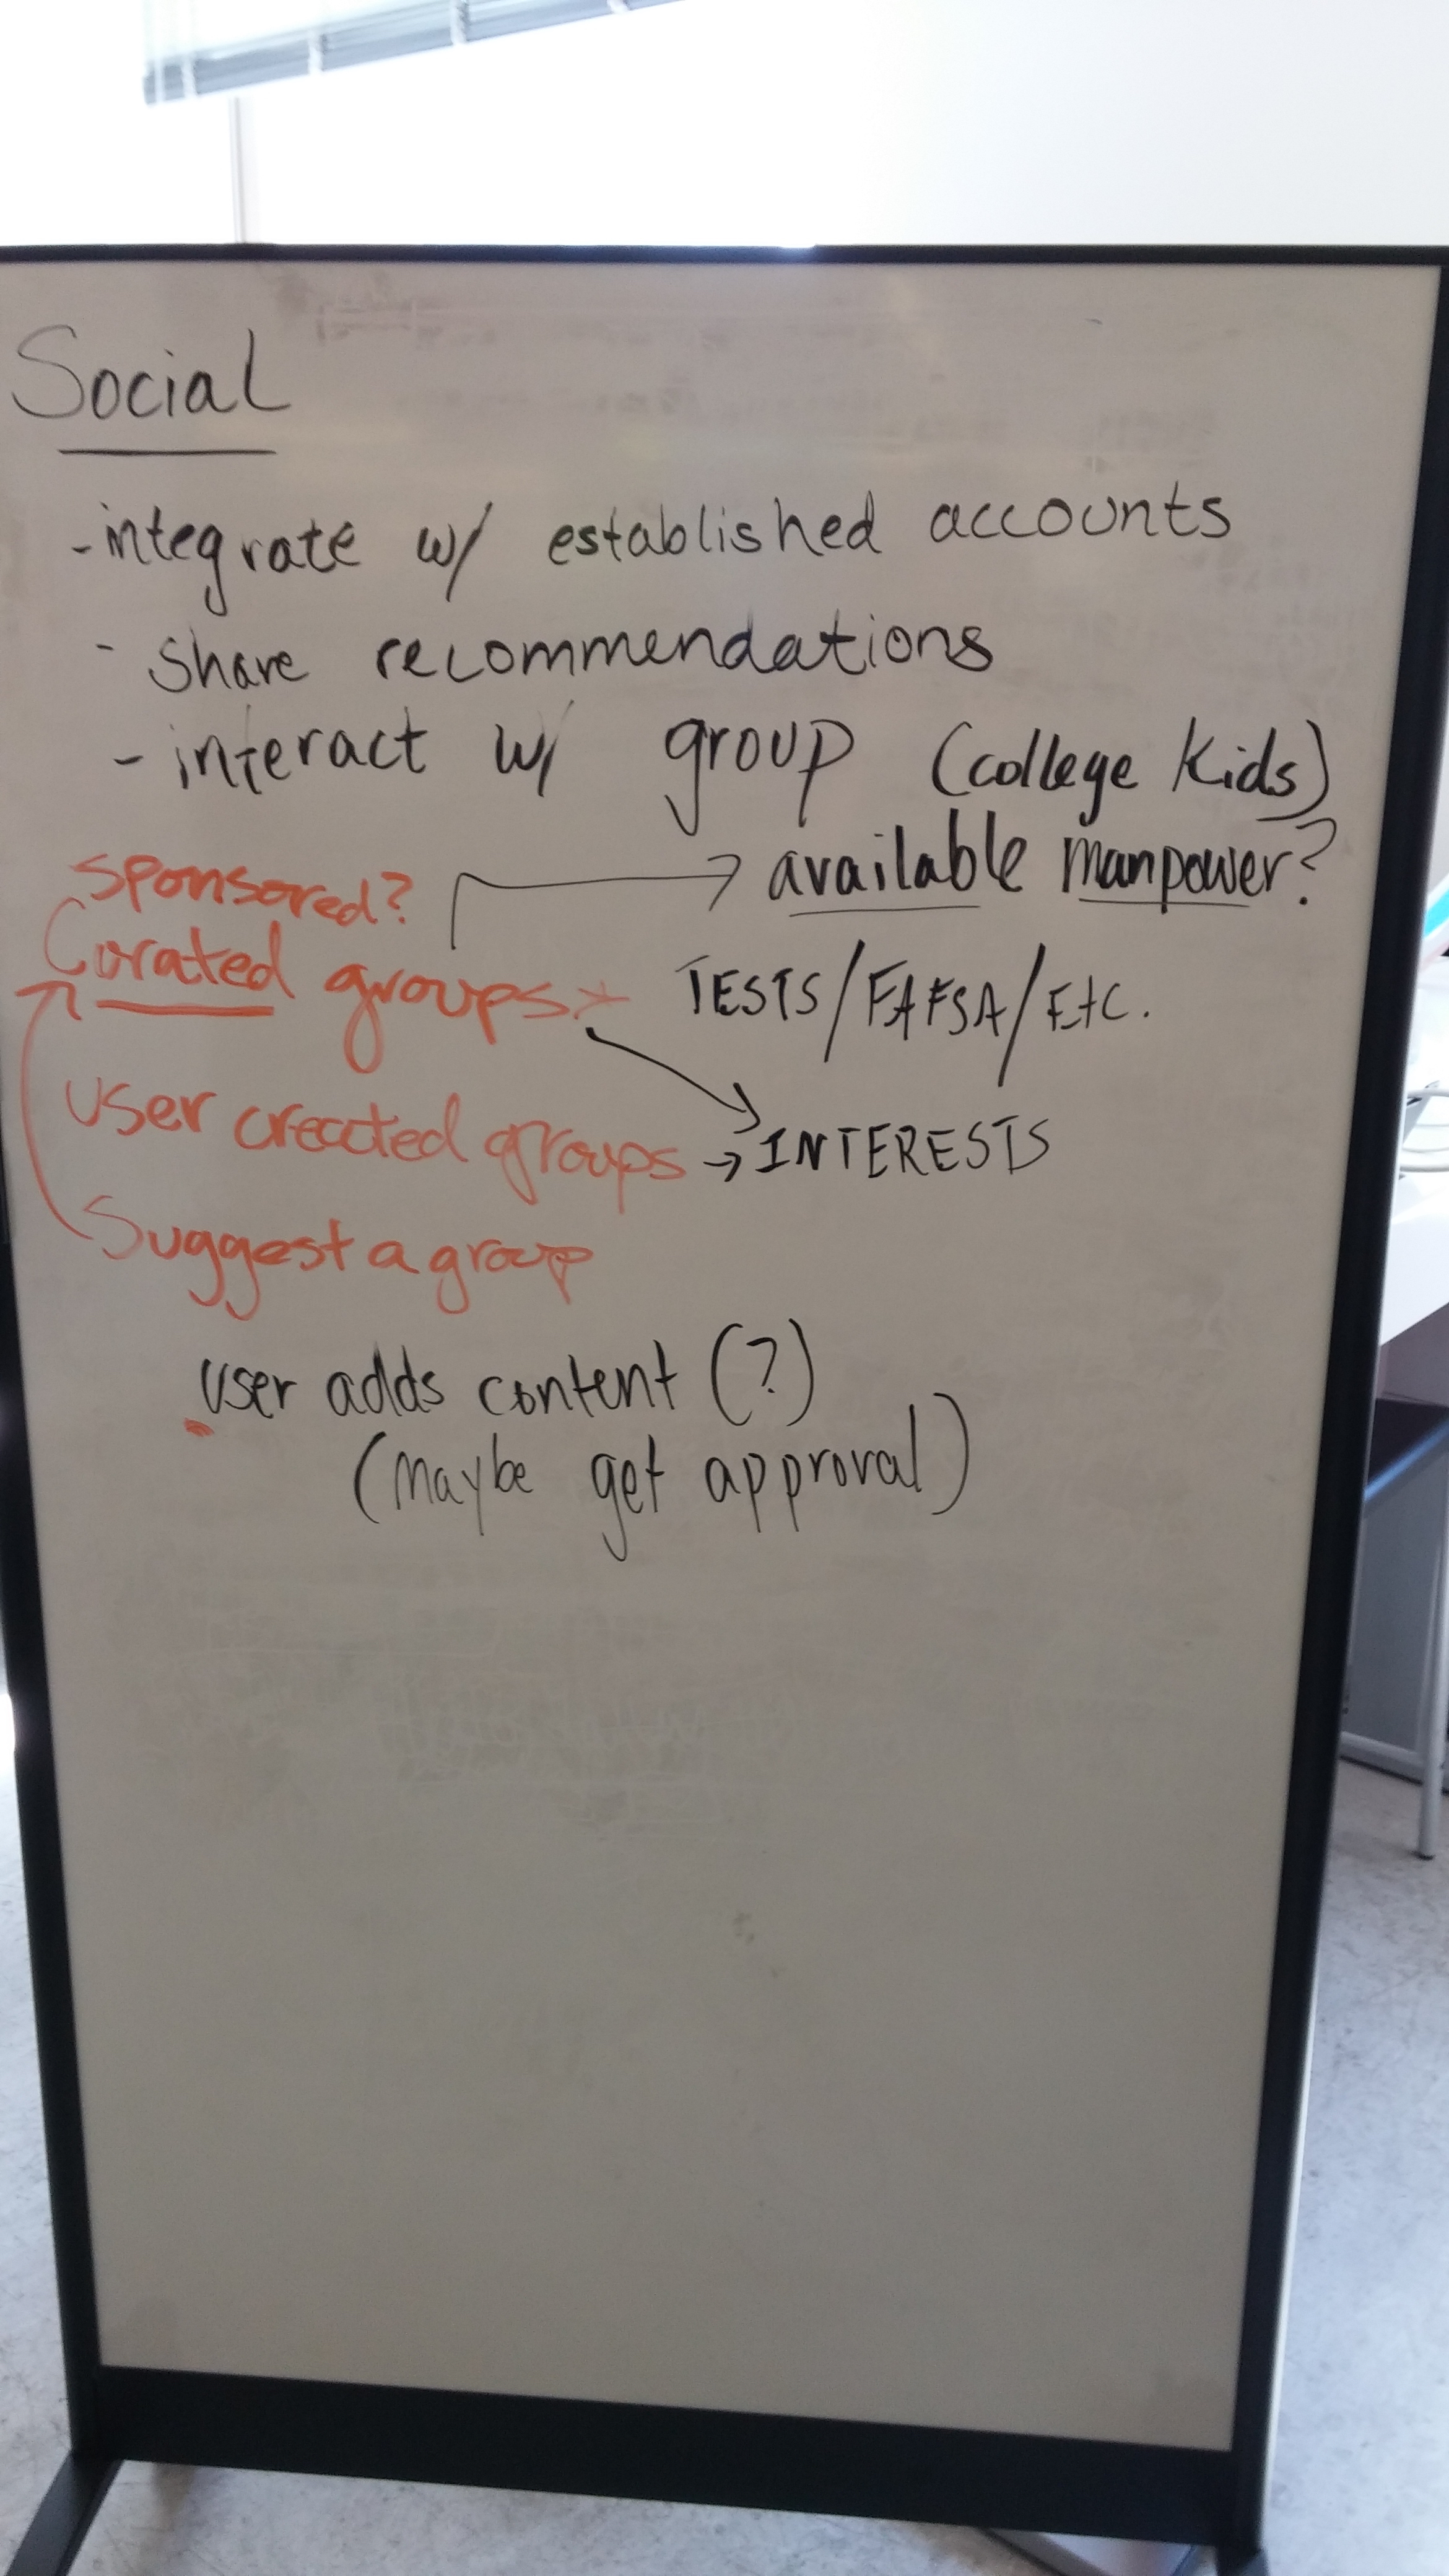 Social
-integrate w/ established accounts
- share recommendations
- interact w/ group (college kids)
sponsored? → available manpower?
Curated groups → TESTS/FAFSA/Etc.
user created groups → INTERESTS
Suggest a group
user adds content (?)
(maybe get approval)